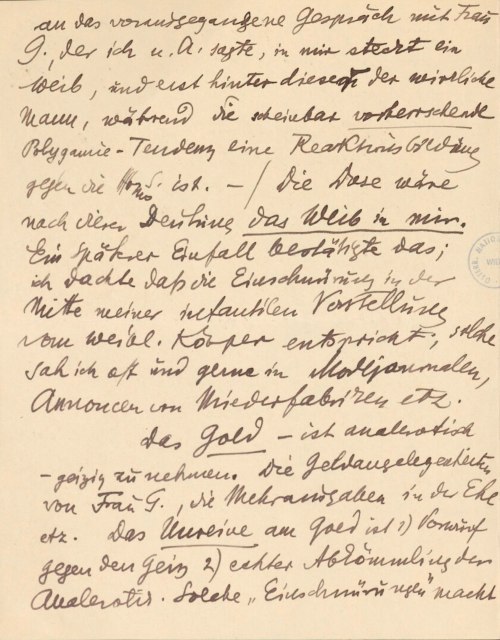 an das vorausgegangene Gespräch mit Frau
G., der ich u. A. sagte, in mir steckt ein
Weib, und erst hinter diesem der wirkliche
Mann, während die scheinbar vorherrschende
Polygamie-Tendenz eine Reaktionsbildung
gegen die Homos. ist. — / Die Dose wäre
nach dieser Deutung das Weib in mir.
Ein späterer Einfall bestätigte das;
ich dachte daß die Einschnürung in der
Mitte meiner infantilen Vorstellung
vom weibl. Körper entspricht; solche
sah ich oft und gerne in Modejournalen,
Annoncen von Miederfabriken etz.
das Gold — ist analerotisch
— geizig zu nehmen. Die Geldangelegenheiten
von Frau G., die Mehrausgaben in der Ehe
etz. Das Unreine am Gold ist 1) Vorwurf
gegen den Geiz 2) echter Abkömmling der
Analerotik. Solche „Einschnürungen" macht